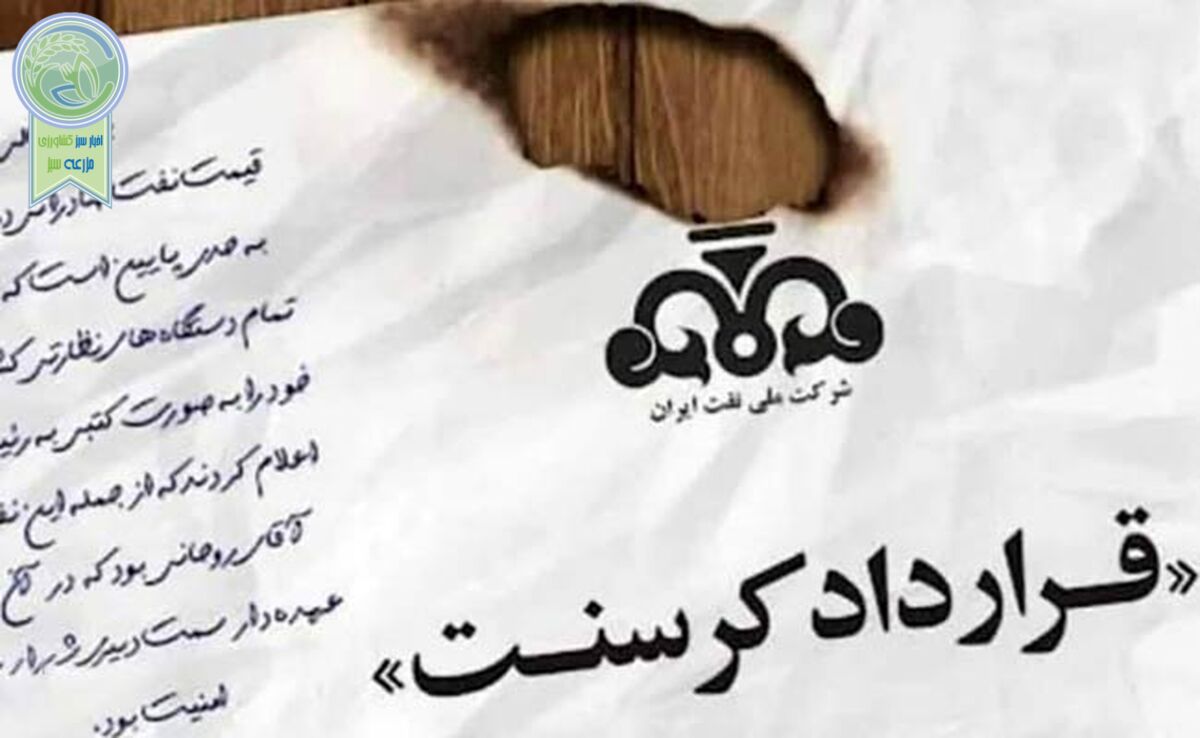 اخبار سبز کشاورزی
مزرعه سبز
قیمت نفت
به حدی پایین است که
تمام دستگاه های نظارتی
خود را به صورت کتبی به
اعلام کردند که از جمله این
آقای روحانی بود که در
عهده دار سمت دبیری
امنیت بود.
شرکت ملی نفت ایران
«قرارداد کرسنت»